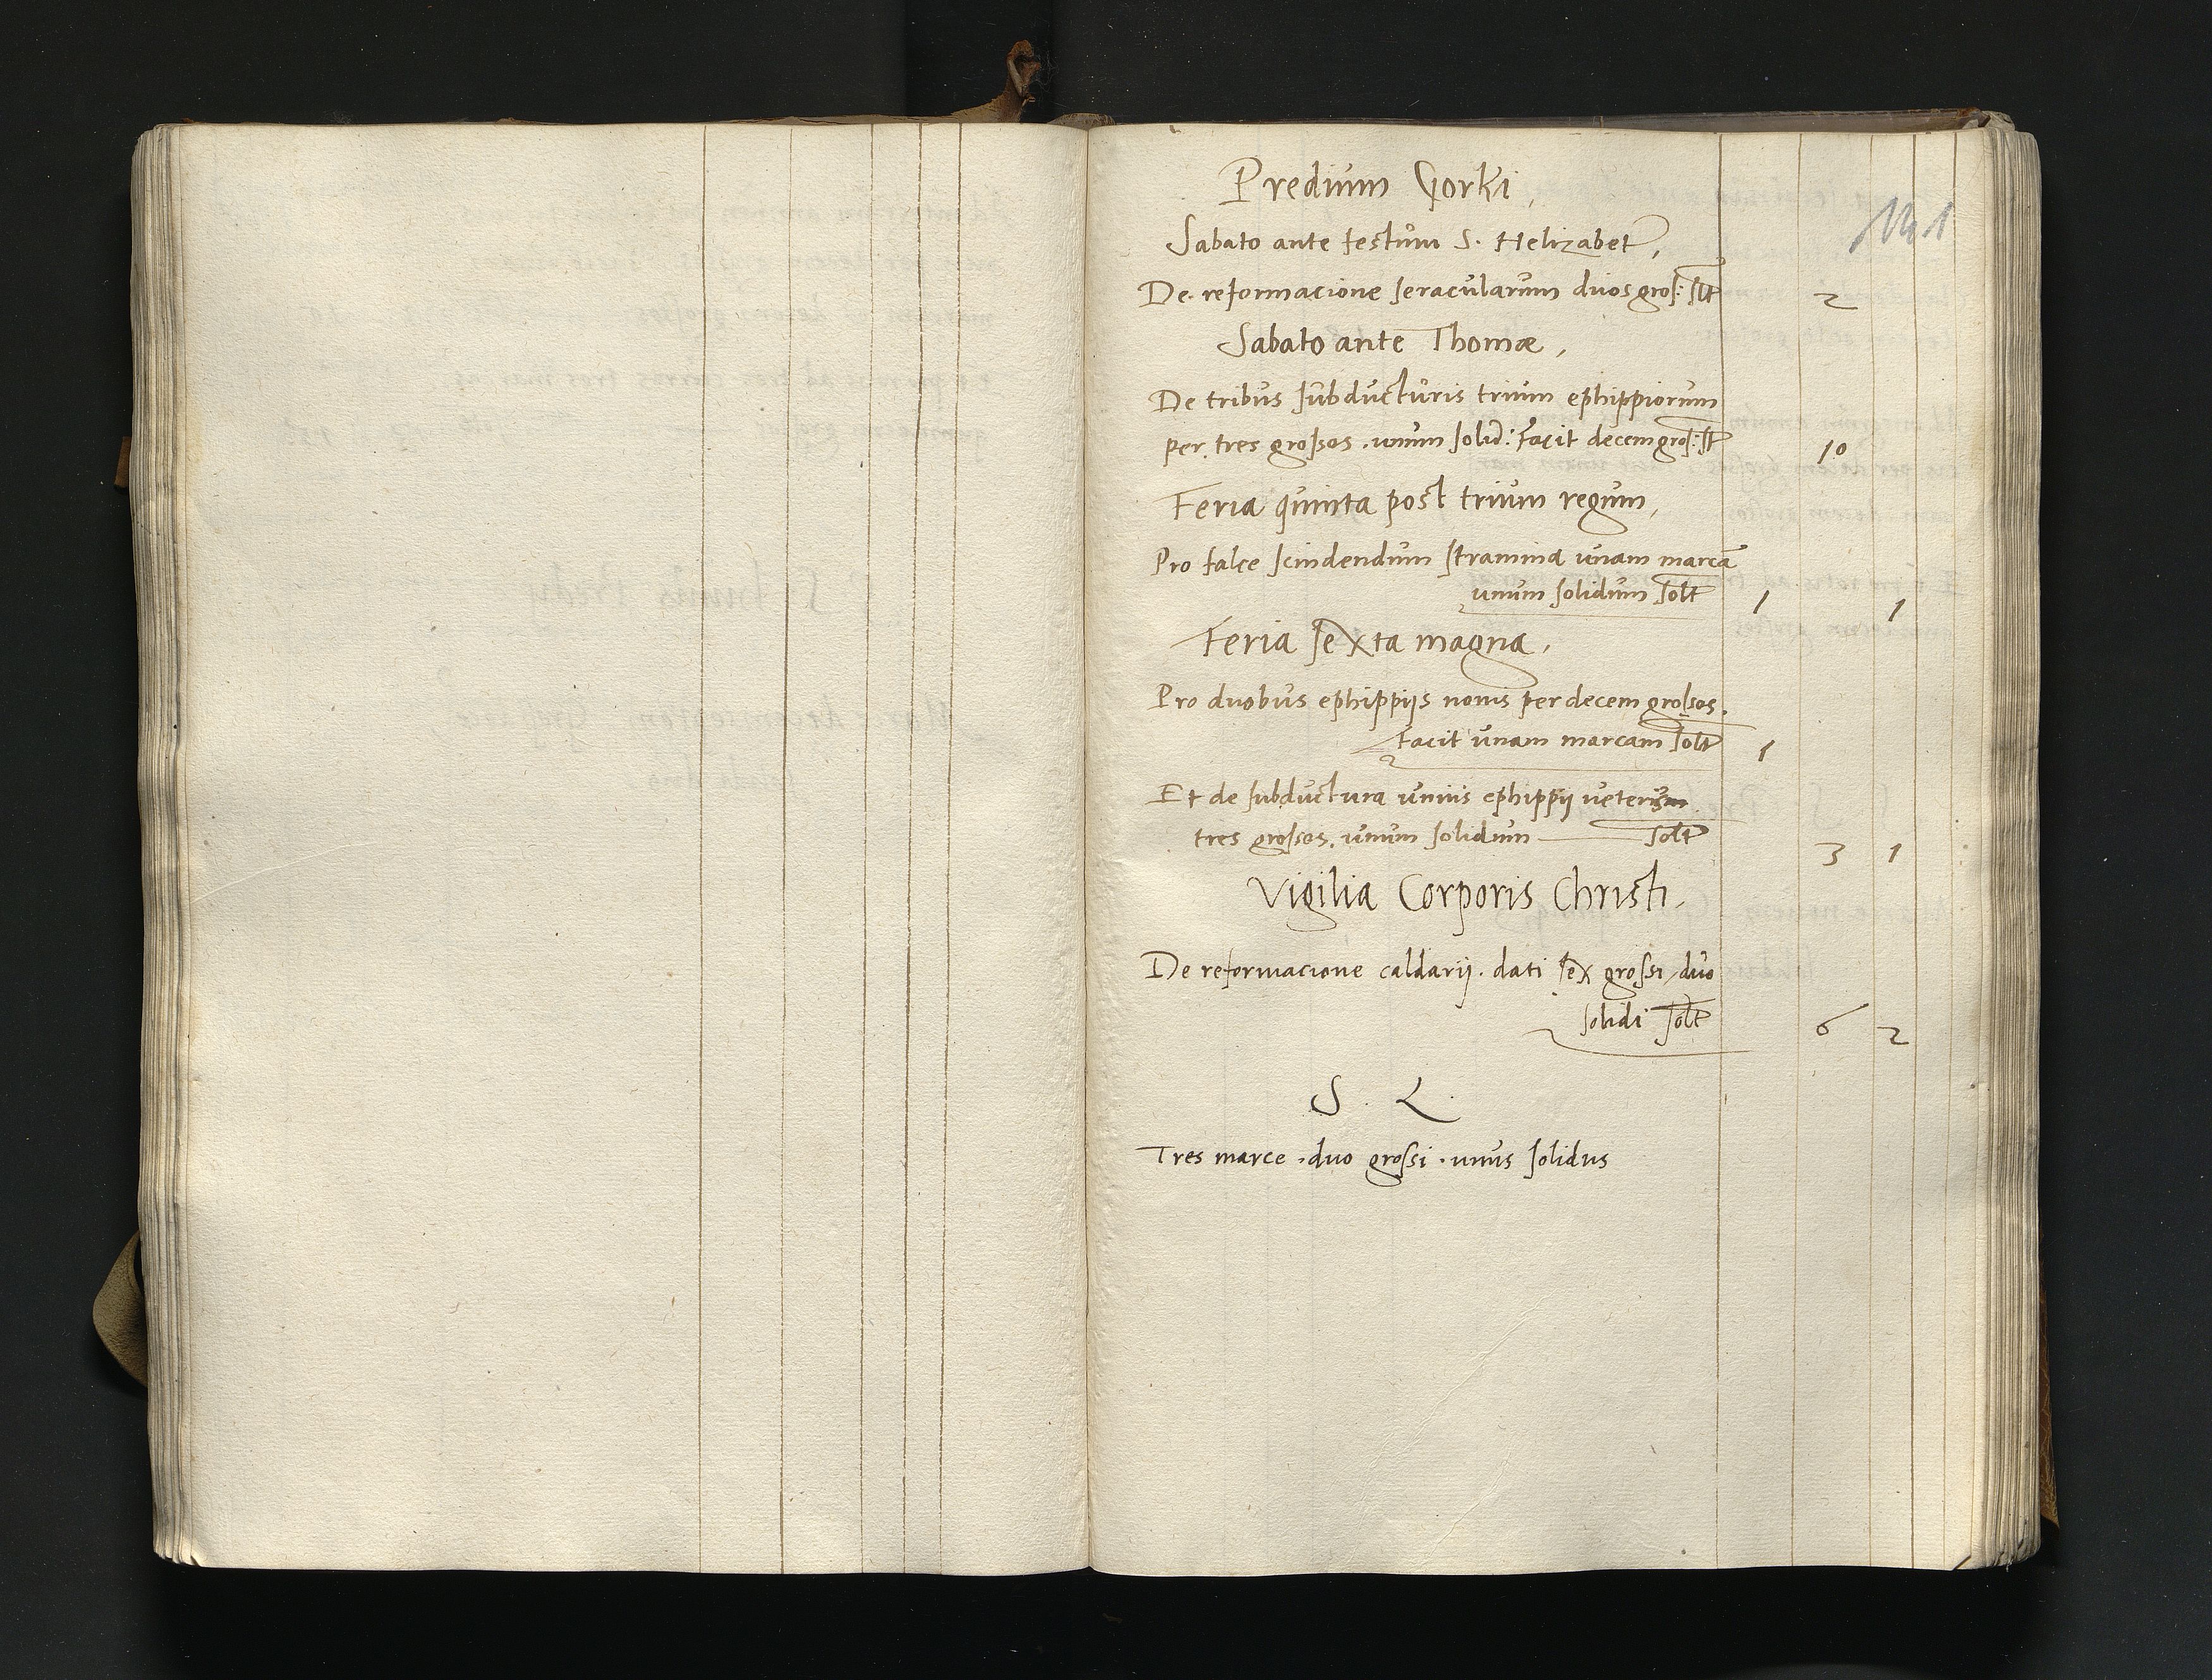 Predium Gorki,
141
Sabato ante festum S. Helizabet,
De reformacione seracularum duos gros: slt 2
Sabato ante Thomæ,
De tribus subducturis trium ephippiorum
per tres grossos. unum solid: facit decem gros: slt 10
Feria quinta post trium regum,
Pro falce scindendum stramina unam marcā
unum solidum solt 1 1
Feria sexta magna,
Pro duobus ephippijs novis per decem grossos.
facit unam marcam solt 1
Et de subductura unius ephippij
tres grossos. unum solidum solt 3 1
Vigilia Corporis Christi.
De reformacione caldarij. dati sex grossi, duo
solidi solt 6 2
S. L.
Tres marce. duo grossi. unus solidus